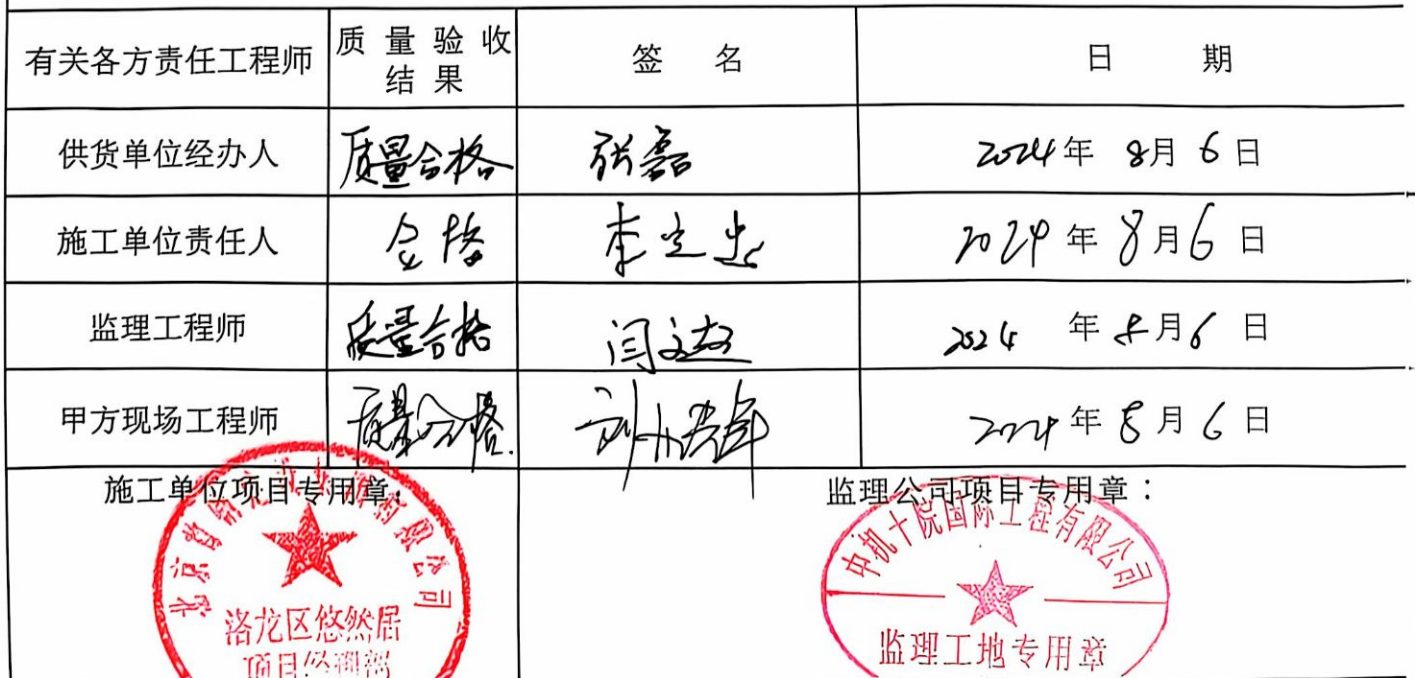 有关各方责任工程师 质量验收结果 签名 日期
供货单位经办人 质量合格 张磊 2024年 8月 6日
施工单位责任人 合格 李 2024年8月6日
监理工程师 质量合格 闫文 2024年8月6日
甲方现场工程师 质量合格. 2024年8月6日
施工单位项目专用章: 监理公司项目专用章:
北京 有限公司
洛龙区悠然居
项目经理部
中机十院国际工程有限公司
监理工地专用章